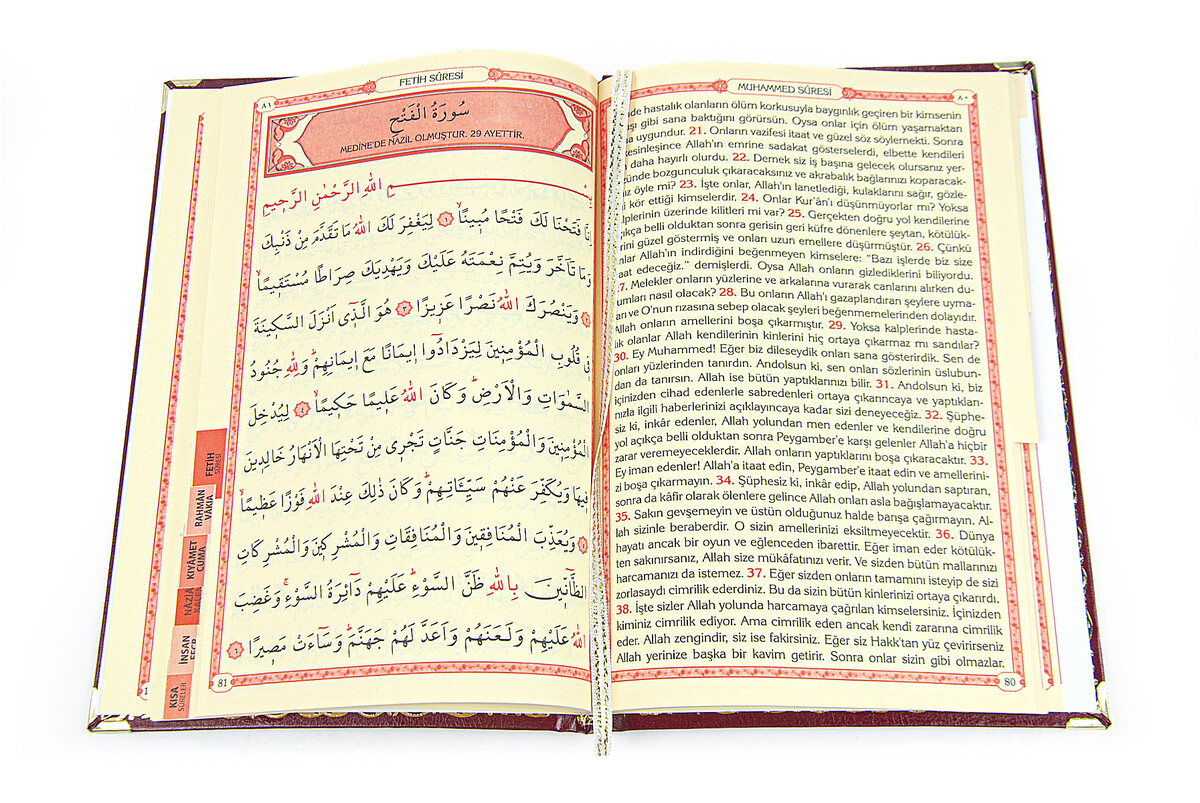 MUHAMMED SÛRESİ
٨٠
de hastalık olanların ölüm korkusuyla baygınlık geçiren bir kimsenin
gibi sana baktığını görürsün. Oysa onlar için ölüm yaşamaktan
uygundur. 21. Onların vazifesi itaat ve güzel söz söylemekti. Sonra
kesinleşince Allah'ın emrine sadakat gösterselerdi, elbette kendileri
daha hayırlı olurdu. 22. Demek siz iş başına gelecek olursanız yer-
yüzünde bozgunculuk çıkaracaksınız ve akrabalık bağlarınızı koparacak-
öyle mi? 23. İşte onlar, Allah'ın lanetlediği, kulaklarını sağır, gözle-
kör ettiği kimselerdir. 24. Onlar Kur'ân'ı düşünmüyorlar mı? Yoksa
kalplerinin üzerinde kilitleri mi var? 25. Gerçekten doğru yol kendilerine
açıkça belli olduktan sonra gerisin geri küfre dönenlere şeytan, kötülük-
lerini güzel göstermiş ve onları uzun emellere düşürmüştür. 26. Çünkü
onlar Allah'ın indirdiğini beğenmeyen kimselere: “Bazı işlerde biz size
itaat edeceğiz.” demişlerdi. Oysa Allah onların gizlediklerini biliyordu.
27. Melekler onların yüzlerine ve arkalarına vurarak canlarını alırken du-
rumları nasıl olacak? 28. Bu onların Allah'ı gazaplandıran şeylere uyma-
ları ve O'nun rızasına sebep olacak şeyleri beğenmemelerinden dolayıdır.
Allah onların amellerini boşa çıkarmıştır. 29. Yoksa kalplerinde hasta-
lık olanlar Allah kendilerinin kinlerini hiç ortaya çıkarmaz mı sandılar?
30. Ey Muhammed! Eğer biz dileseydik onları sana gösterirdik. Sen de
onları yüzlerinden tanırdın. Andolsun ki, sen onları sözlerinin üslubun-
dan da tanırsın. Allah ise bütün yaptıklarınızı bilir. 31. Andolsun ki, biz
içinizden cihad edenlerle sabredenleri ortaya çıkarıncaya ve yaptıkları-
nızla ilgili haberlerinizi açıklayıncaya kadar sizi deneyeceğiz. 32. Şüphe-
siz ki, inkâr edenler, Allah yolundan men edenler ve kendilerine doğru
yol açıkça belli olduktan sonra Peygamber'e karşı gelenler Allah'a hiçbir
zarar veremeyeceklerdir. Allah onların yaptıklarını boşa çıkaracaktır. 33.
Ey iman edenler! Allah'a itaat edin, Peygamber'e itaat edin ve amellerini-
zi boşa çıkarmayın. 34. Şüphesiz ki, inkâr edip, Allah yolundan saptıran,
sonra da kâfir olarak ölenlere gelince Allah onları asla bağışlamayacaktır.
35. Sakın gevşemeyin ve üstün olduğunuz halde barışa çağırmayın. Al-
lah sizinle beraberdir. O sizin amellerinizi eksiltmeyecektir. 36. Dünya
hayatı ancak bir oyun ve eğlenceden ibarettir. Eğer iman eder kötülük-
ten sakınırsanız, Allah size mükâfatınızı verir. Ve sizden bütün mallarınızı
harcamanızı da istemez. 37. Eğer sizden onların tamamını isteyip de sizi
zorlasaydı cimrilik ederdiniz. Bu da sizin bütün kinlerinizi ortaya çıkarırdı.
38. İşte sizler Allah yolunda harcamaya çağrılan kimselersiniz. İçinizden
kiminiz cimrilik ediyor. Ama cimrilik eden ancak kendi zararına cimrilik
eder. Allah zengindir, siz ise fakirsiniz. Eğer siz Hakk'tan yüz çevirirseniz
Allah yerinize başka bir kavim getirir. Sonra onlar sizin gibi olmazlar.
80
FETİH SÛRESİ
٨١
سُورَةُ الْفَتْحِ
MEDİNE'DE NAZİL OLMUŞTUR. 29 AYETTİR.
بِسْمِ اللّٰهِ الرَّحْمٰنِ الرَّحٖيمِ
اِنَّا فَتَحْنَا لَكَ فَتْحًا مُبٖينًاۙ ﴿١﴾ لِيَغْفِرَ لَكَ اللّٰهُ مَا تَقَدَّمَ مِنْ ذَنْبِكَ
وَمَا تَاَخَّرَ وَيُتِمَّ نِعْمَتَهُ عَلَيْكَ وَيَهْدِيَكَ صِرَاطًا مُسْتَقٖيمًاۙ
﴿٢﴾ وَيَنْصُرَكَ اللّٰهُ نَصْرًا عَزٖيزًا ﴿٣﴾ هُوَ الَّذٖٓي اَنْزَلَ السَّكٖينَةَ
فٖي قُلُوبِ الْمُؤْمِنٖينَ لِيَزْدَادُٓوا اٖيمَانًا مَعَ اٖيمَانِهِمْؕ وَلِلّٰهِ جُنُودُ
السَّمٰوَاتِ وَالْاَرْضِؕ وَكَانَ اللّٰهُ عَلٖيمًا حَكٖيمًاۙ ﴿٤﴾ لِيُدْخِلَ
الْمُؤْمِنٖينَ وَالْمُؤْمِنَاتِ جَنَّاتٍ تَجْرٖي مِنْ تَحْتِهَا الْاَنْهَارُ خَالِدٖينَ
فٖيهَا وَيُكَفِّرَ عَنْهُمْ سَيِّـَٔاتِهِمْؕ وَكَانَ ذٰلِكَ عِنْدَ اللّٰهِ فَوْزًا عَظٖيمًاۙ
﴿٥﴾ وَيُعَذِّبَ الْمُنَافِقٖينَ وَالْمُنَافِقَاتِ وَالْمُشْرِكٖينَ وَالْمُشْرِكَاتِ
الظَّٓانّٖينَ بِاللّٰهِ ظَنَّ السَّوْءِؕ عَلَيْهِمْ دَٓائِرَةُ السَّوْءِۚ وَغَضِبَ
اللّٰهُ عَلَيْهِمْ وَلَعَنَهُمْ وَاَعَدَّ لَهُمْ جَهَنَّمَؕ وَسَٓاءَتْ مَصٖيرًا ﴿٦﴾
81
FETİH
SÛRESİ
RAHMÂN
VAKIA
KIYAMET
CUMA
NAZİA
İNSAN
KISA
SÛRELER
1